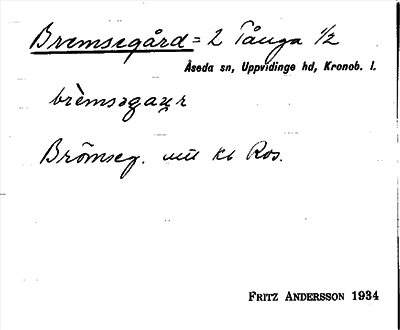 Bremsegård = 2 Tånga 1/2
Åseda sn, Uppvidinge hd, Kronob. l.
brèmsəgaʐr
Brömseg. utt kb Ros.
FRITZ ANDERSSON 1934